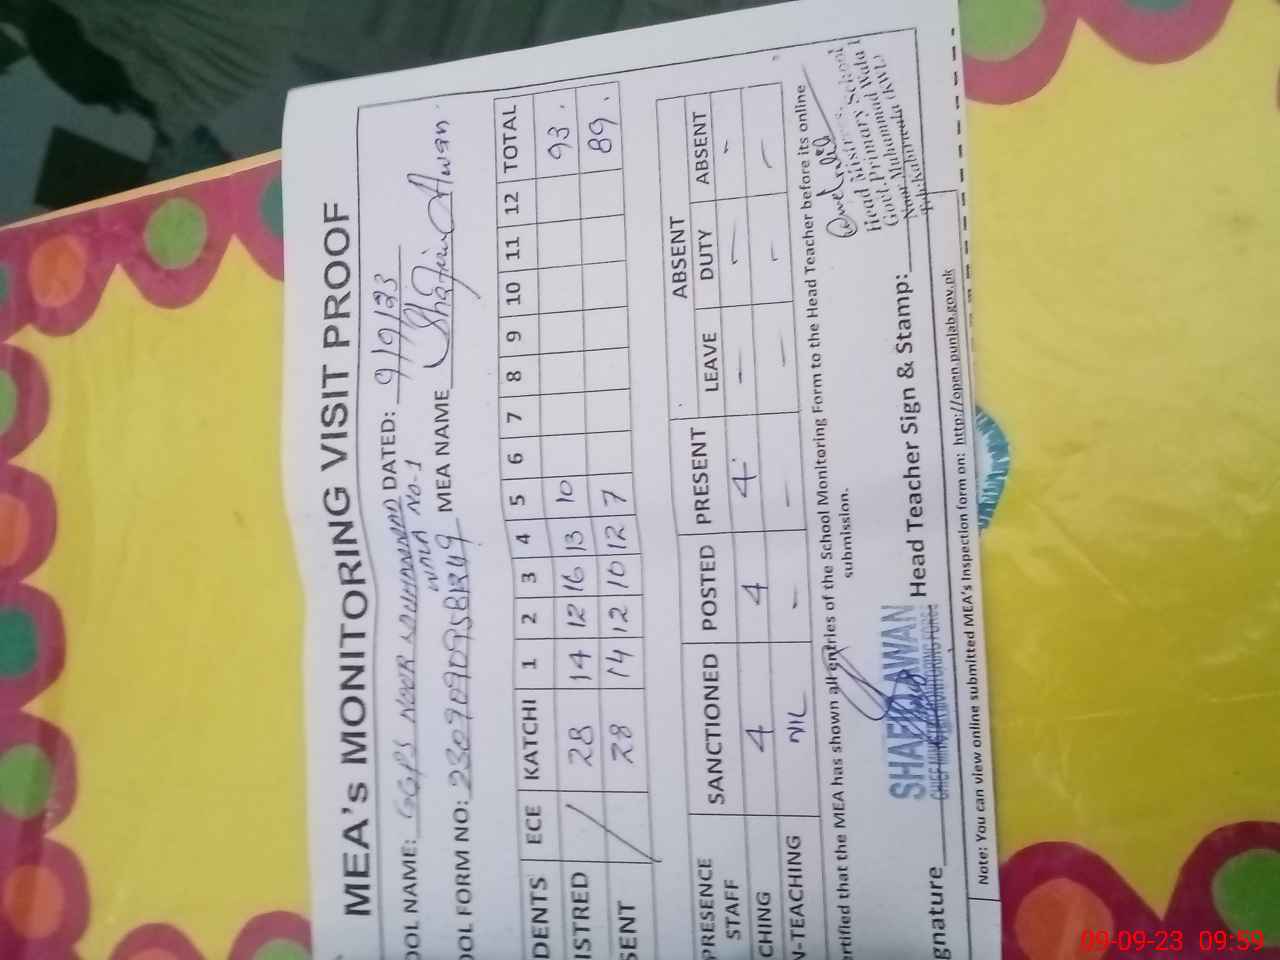 MEA's MONITORING VISIT PROOF
OOL NAME: GGPS NOOR MUHAMMAD DATED: 9/9/23
WALA No-1
OOL FORM NO: MEA NAME Shafiq Awan.
DENTS ECE KATCHI 1 2 3 4 5 6 7 8 9 10 11 12 TOTAL
ISTRED / 28 14 12 16 13 10 93.
SENT 28 14 12 10 12 7 89.
PRESENCE SANCTIONED POSTED PRESENT ABSENT
STAFF LEAVE DUTY ABSENT
CHING 4 4 4 - - -
N-TEACHING NIL - - - - -
ertified that the MEA has shown all entries of the School Monitoring Form to the Head Teacher before its online
submission.
Head Mistress,
Govt. Primary School
Noor Muhammad Wala 1
Teh: Kabirwala (KWL)
SHAFIQ AWAN
CHIEF MINISTER MONITORING FORCE
gnature Head Teacher Sign & Stamp:
Note: You can view online submitted MEA's Inspection form on: http://open.punjab.gov.pk
09-09-23 09:59